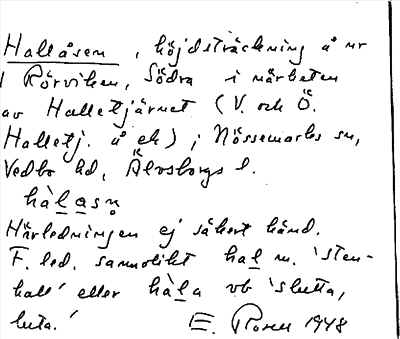 Hallåsen, höjdsträckning å nr
1 Rörviken, Södra i närheten
av Halletjärnet (V. och Ö.
Halletj. å ek) i Nössemarks sn,
Vedbo hd, Älvsborgs l.
hàlasn̥
Härledningen ej säkert känd.
F. led. sannolikt hal m. 'sten-
hall' eller hàla vb 'slutta,
luta.' E. Rosen 1948